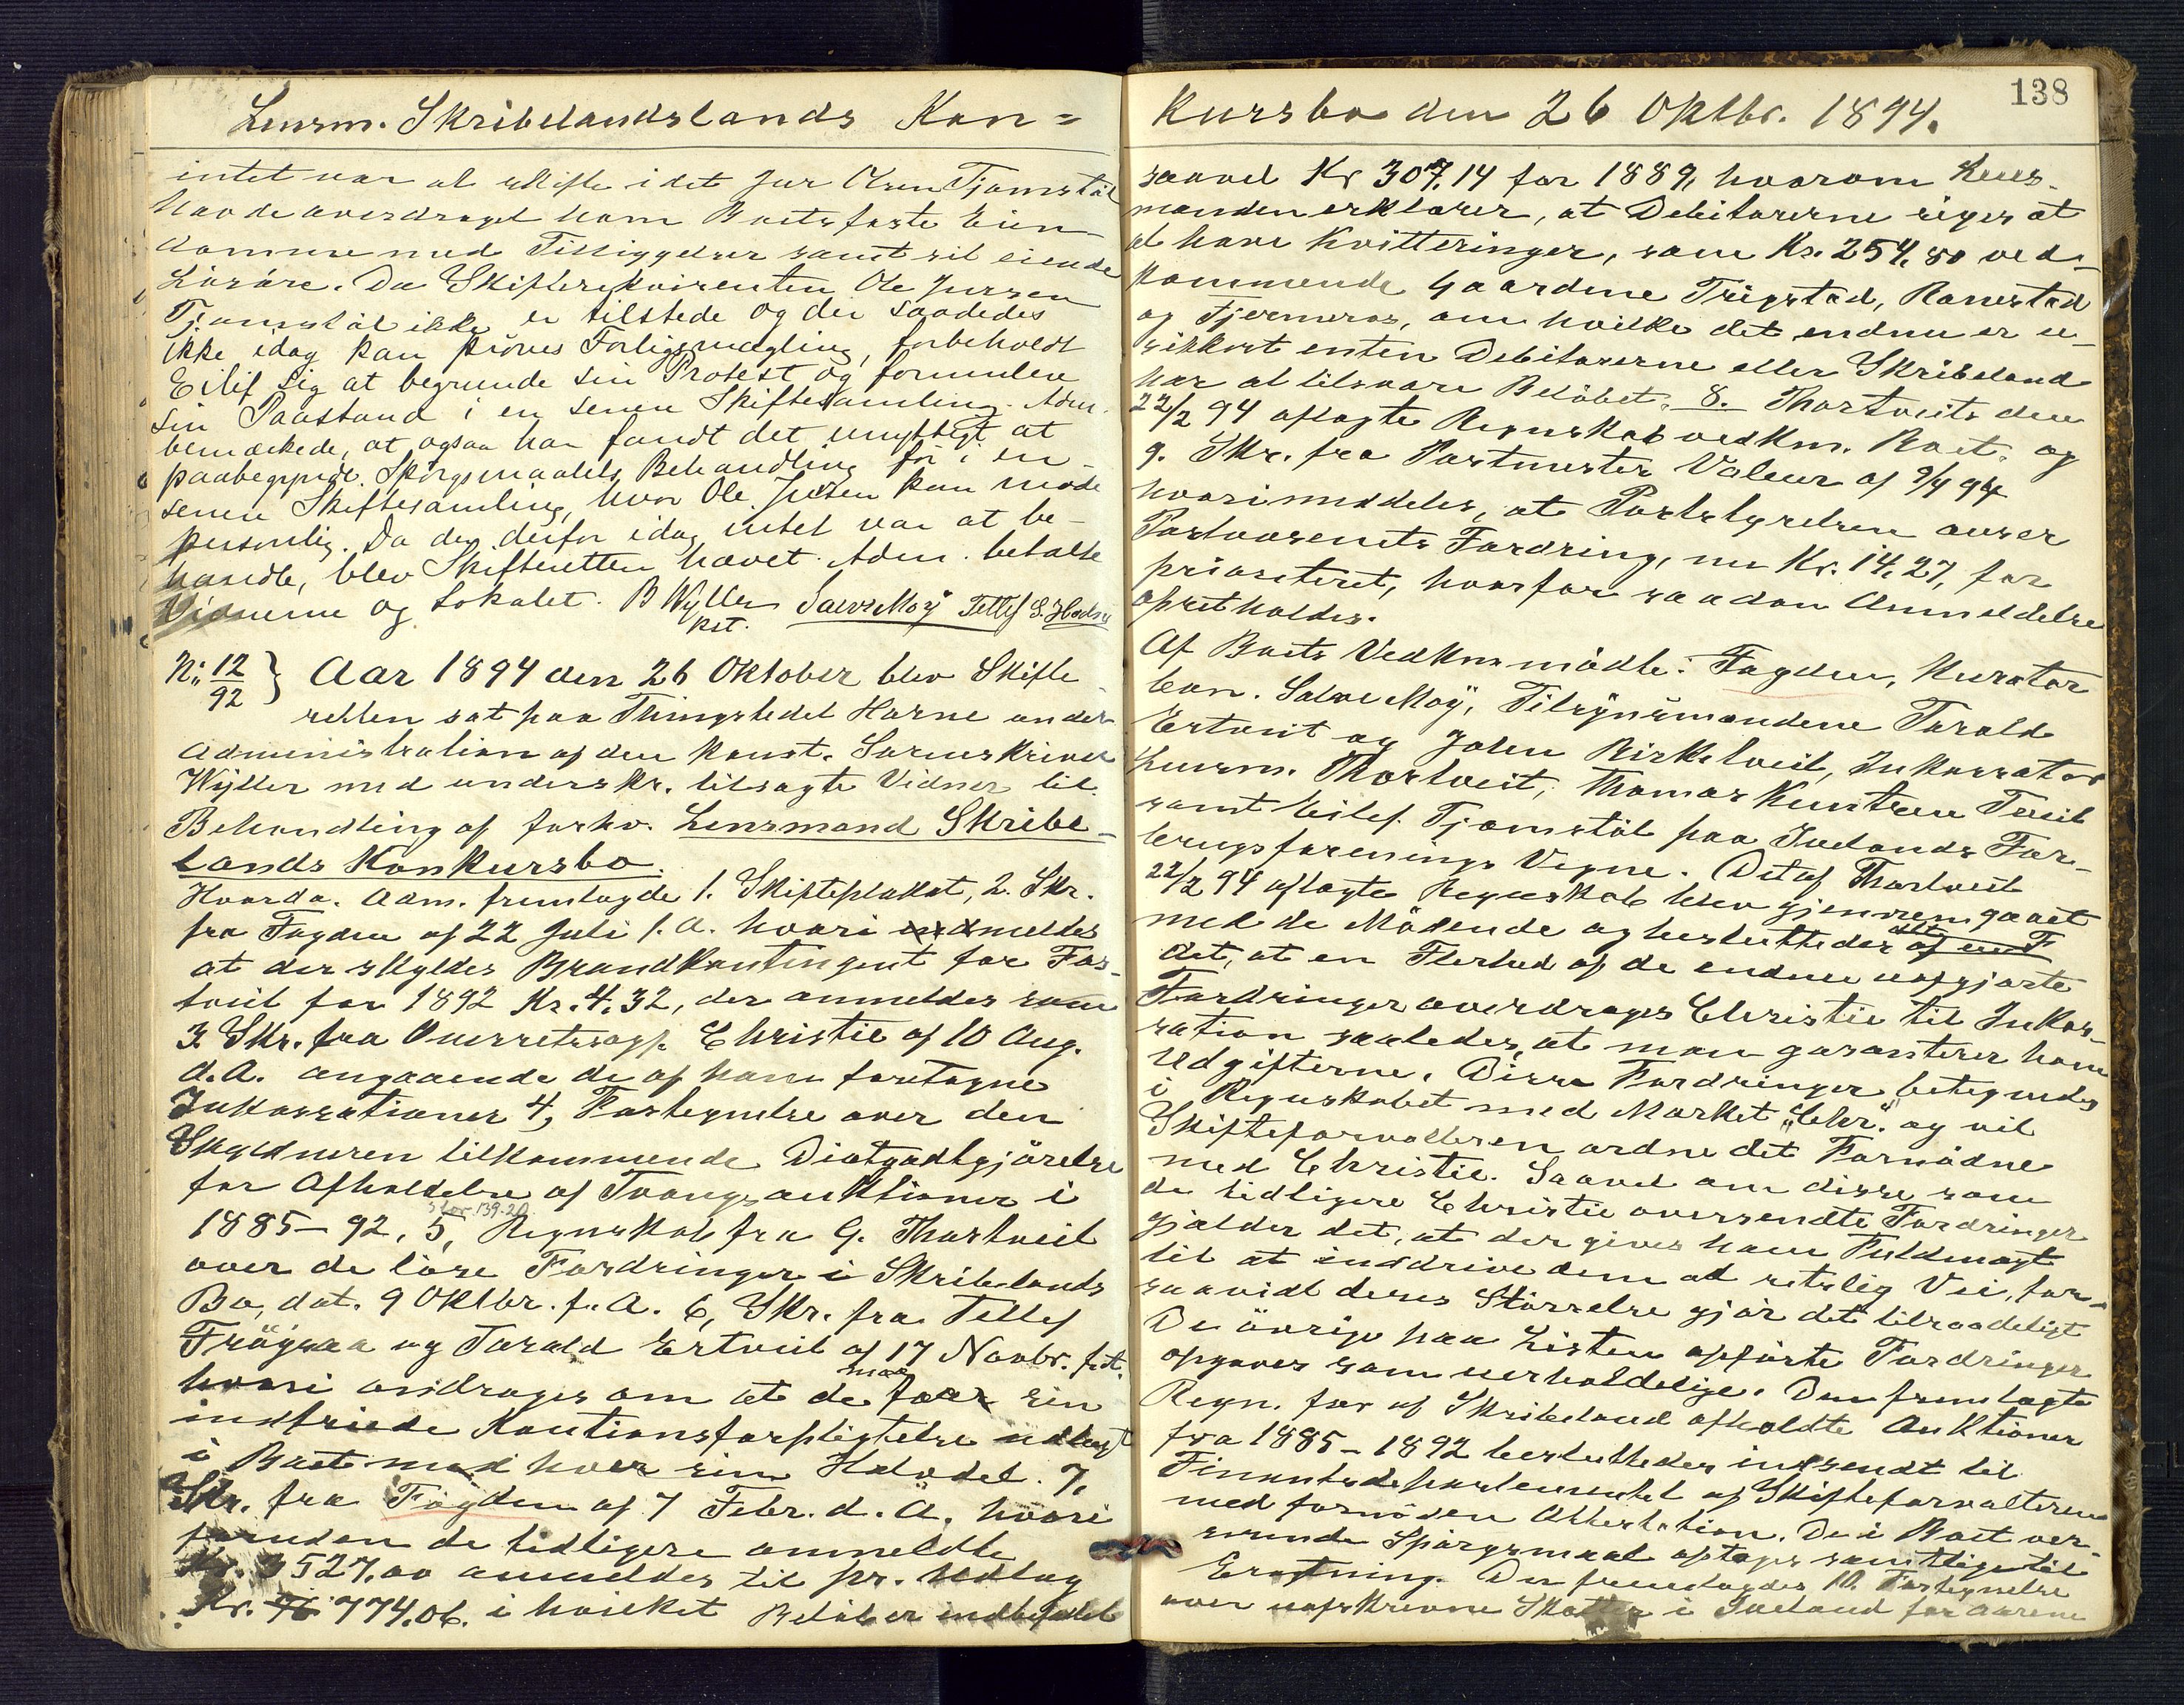 Lensm. Skribelandslands Kon=
intet var at skifte idet Jur Olsen Tjomstøl
havde overdraget ham Boets faste Eien-
domme med Tilliggelser samt sit eiende
Løsøre. Da Skifterekvirenten Ole Jursen
Tjomstøl ikke er tilstede og der saadedes
ikke idag kan prøves Forligsmægling, forbeholdt
Eilif sig at begrunde sin Protest og formulere
sin Paastand i en senere Skiftesamling. Adm.
bemærkede, at ogsaa han fandt det unyttigt at
paabegynde Spørgsmaalets Behandling før i en
senere Skiftesamling, hvor Ole Jursen kan møde
personlig. Da der derfor idag intet var at be-
handle, blev Skifteretten hævet. Adm. betalte
Vidnerne og Lokalet. B Wyller Salve Moÿ Tellef S.
kst.
N: 12/92 } Aar 1894 den 26 Oktober blev Skifte
retten sat paa Thingstedet Horne under
Administration af den konst. Sorenskriver
Wÿller med underskr. tilsagte Vidner til
Behandling af forhv. Lensmand Skribe-
lands Konkursbo.
Hvorda. Adm. fremlagde 1. Skifteplakat, 2. Skr.
fra Fogden af 22 Juli f. A. hvori meldes
at der skyldes Brandkontingent for Fos-
tveit for 1892 Kr. 4.32, der anmeldes som
3. Skr. fra Overretssagf. Christie af 10 Aug.
d. A. angaaende de af ham foretagne
Inkassationer 4, Fortegnelse over den
Skyldneren tilkommende Diætgodtgjörelse
for Afholdelse af Tvangsauktioner i
1885-92, 5, Regnskab fra G. Thortveit
over de løse Fordringer i Skribelands
Bo, dat. 9 Oktbr. f. A. 6, Skr. fra Tellef
Frøysaa og Torald Ertveit af 17 Novbr. f.A.
maa
hvori andrages om at de faar sin
indfriede Kautionsforpligtelse udlagt
i Boet med hver sin Halvdel. 7,
Skr. fra Fogden af 7 Febr. d. A. hvori
foruden de tidligere anmeldte
Kr. 3527.00 anmeldes til pr. Udlag
Kr. 774.06. i hvilket Beløb er indbefattet
138
kursbo den 26 Oktbr. 1894.
saavel Kr 307.14 for 1889, hvorom Lens-
manden erklærer, at Debitorerne siges at
at have Kvitteringer, som Kr. 254.80 ved-
kommende Gaardene Trygstad, Ronestad
og Tjermeros, om hvilke det endnu er u-
sikkert enten Debitorerne eller Skribeland
har at tilsvare Beløbet, 8. Thortveits den
22/2 94 aflagte Regnskab vedkm. Boet, og
9. Skr. fra Postmester Valeur af 9/4 94
hvori meddeles, at Poststyrelsen anser
Postvæsenets Fordring, nu Kr. 14.27, for
prioriteret, hvorfor saadan Anmeldelse
opretholdes.
Af Boets Vedkm mødte: Fogden, Kurator
bon. Salve Moÿ, Tilsynsmændene Torald
Ertveit og John Birketveit, Inkassator
Lensm. Thortveit, Thomas Knutsen Tveit
samt Eilef Tjomstøl paa Ivelands For-
brugsforenings Vegne. Det af Thortveit
22/2 94 aflagte Regnskab blev gjennemgaaet
med de Mødende og besluttedes af en F
det, at en Flerhed af de endnu uopgjorte
Fordringer overdrages Christie til Inkas-
sation saaledes, at man garanterer ham
Udgifterne. Disse Fordringer betegnedes
i Regnskabet med Mærket „Chr." og vil
Skifteforvalteren ordne det Fornødne
med Christie. Saavel om disse som
de tidligere Christie oversendte Fordringer
gjælder det, at der gives ham Fuldmagt
til at inddrive dem ad retslig Vei, for-
saavidt deres Størrelse gjør det tilraadeligt
De øvrige paa Listen opførte Fordringer
opgaves som uerholdelige. Den fremlagte
Regn. for af Skribeland afholdte Auktioner
fra 1885-1892 besluttedes indsendt til
Finantsdepartementet af Skifteforvalteren
med fornøden Attestation. De i Boet ver-
serende Spørgsmaal optages samtlige til
Eragtning. Der fremlagdes 10. Fortegnelse
over uafskrevne Skatter i Iveland for Aarene